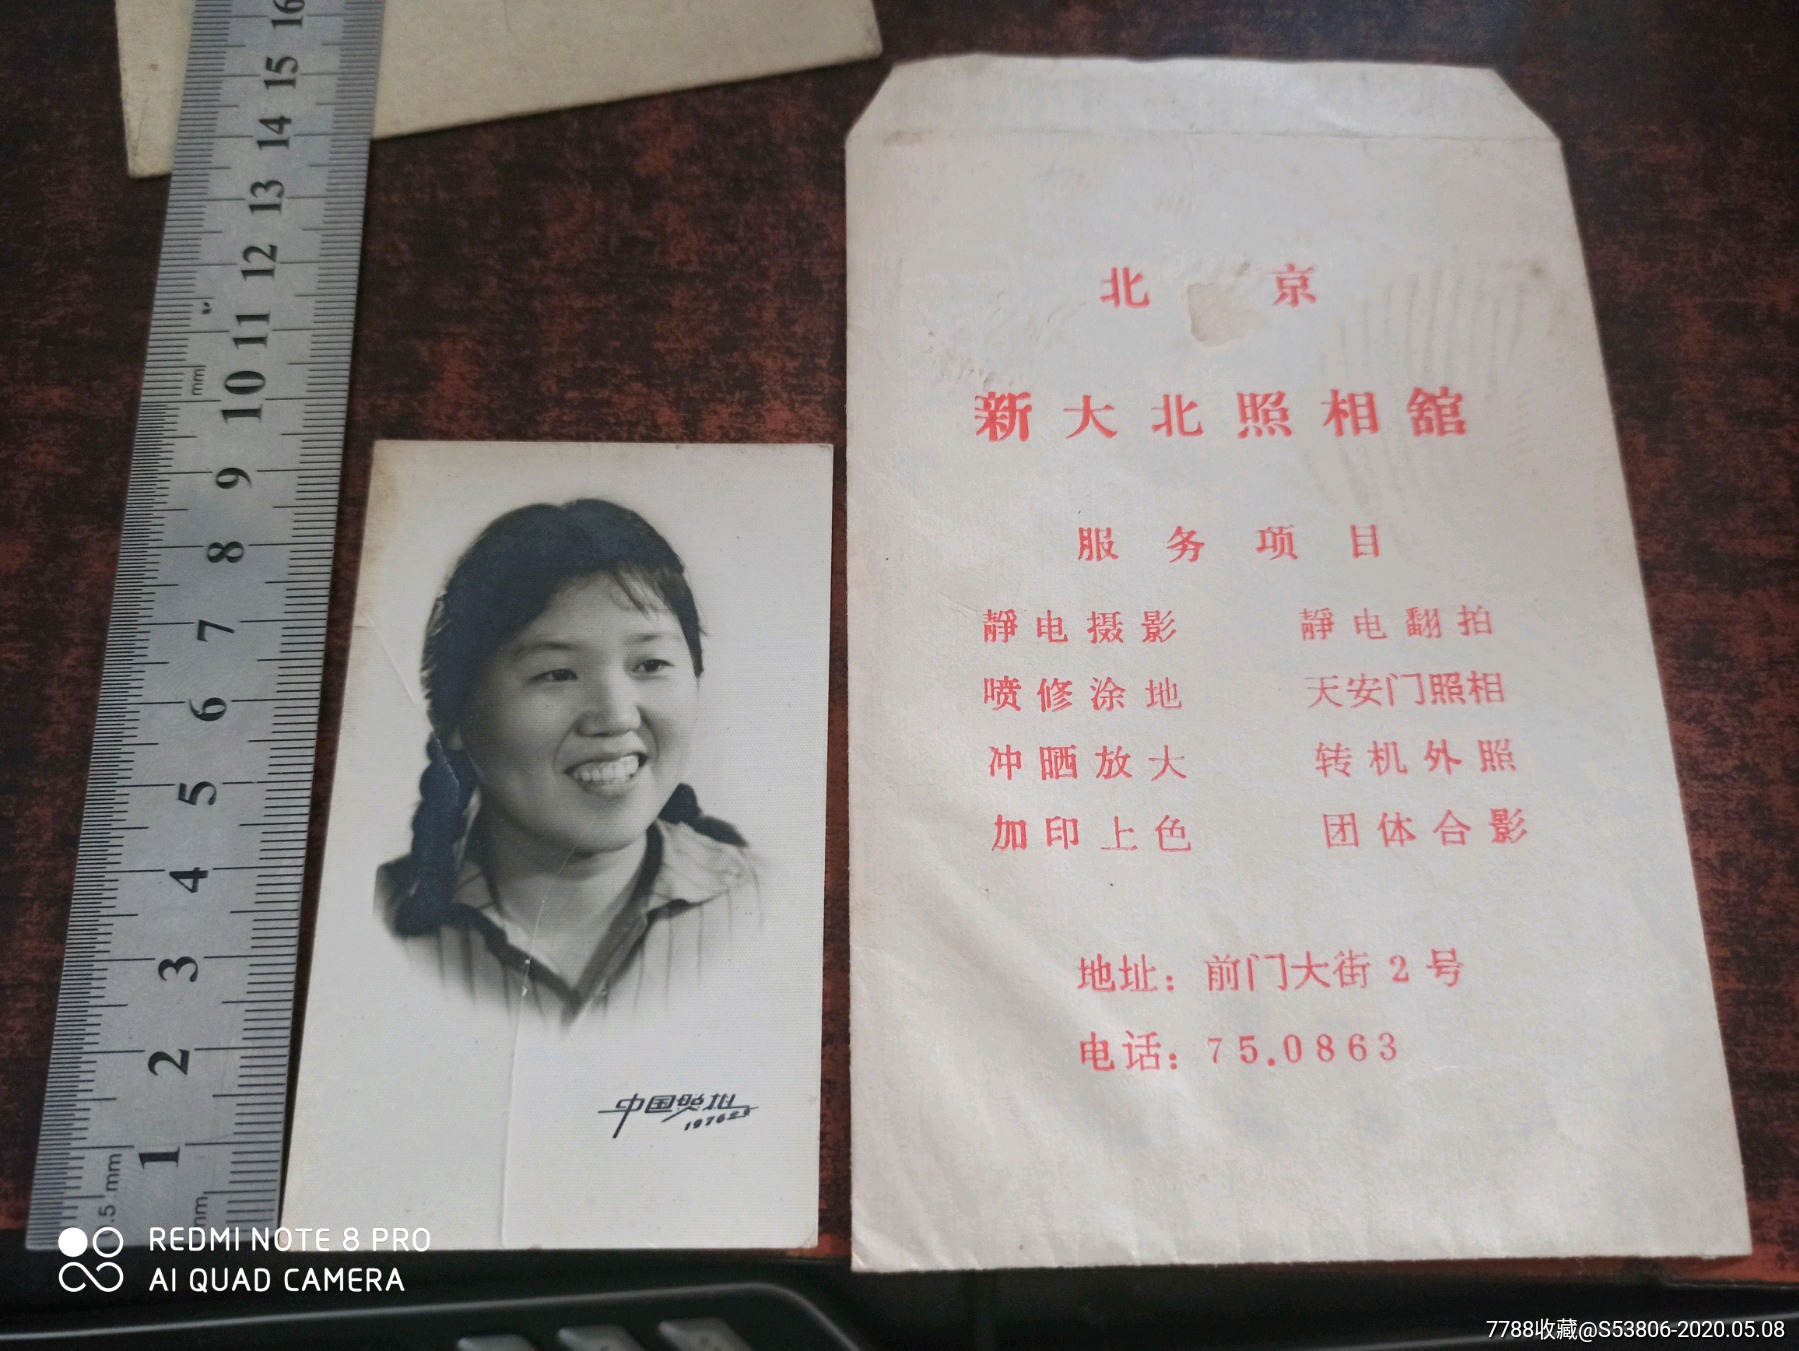 16
15
14
13
12
11
10
mm
9
8
7
6
5
4
3
2
1
.5 mm
北 京
新大北照相舘
服务项目
靜电摄影 靜电翻拍
喷修涂地 天安门照相
冲晒放大 转机外照
加印上色 团体合影
地址：前门大街2号
电话：75.0863
中国照相
REDMI NOTE 8 PRO
AI QUAD CAMERA
7788收藏@S53806-2020.05.08